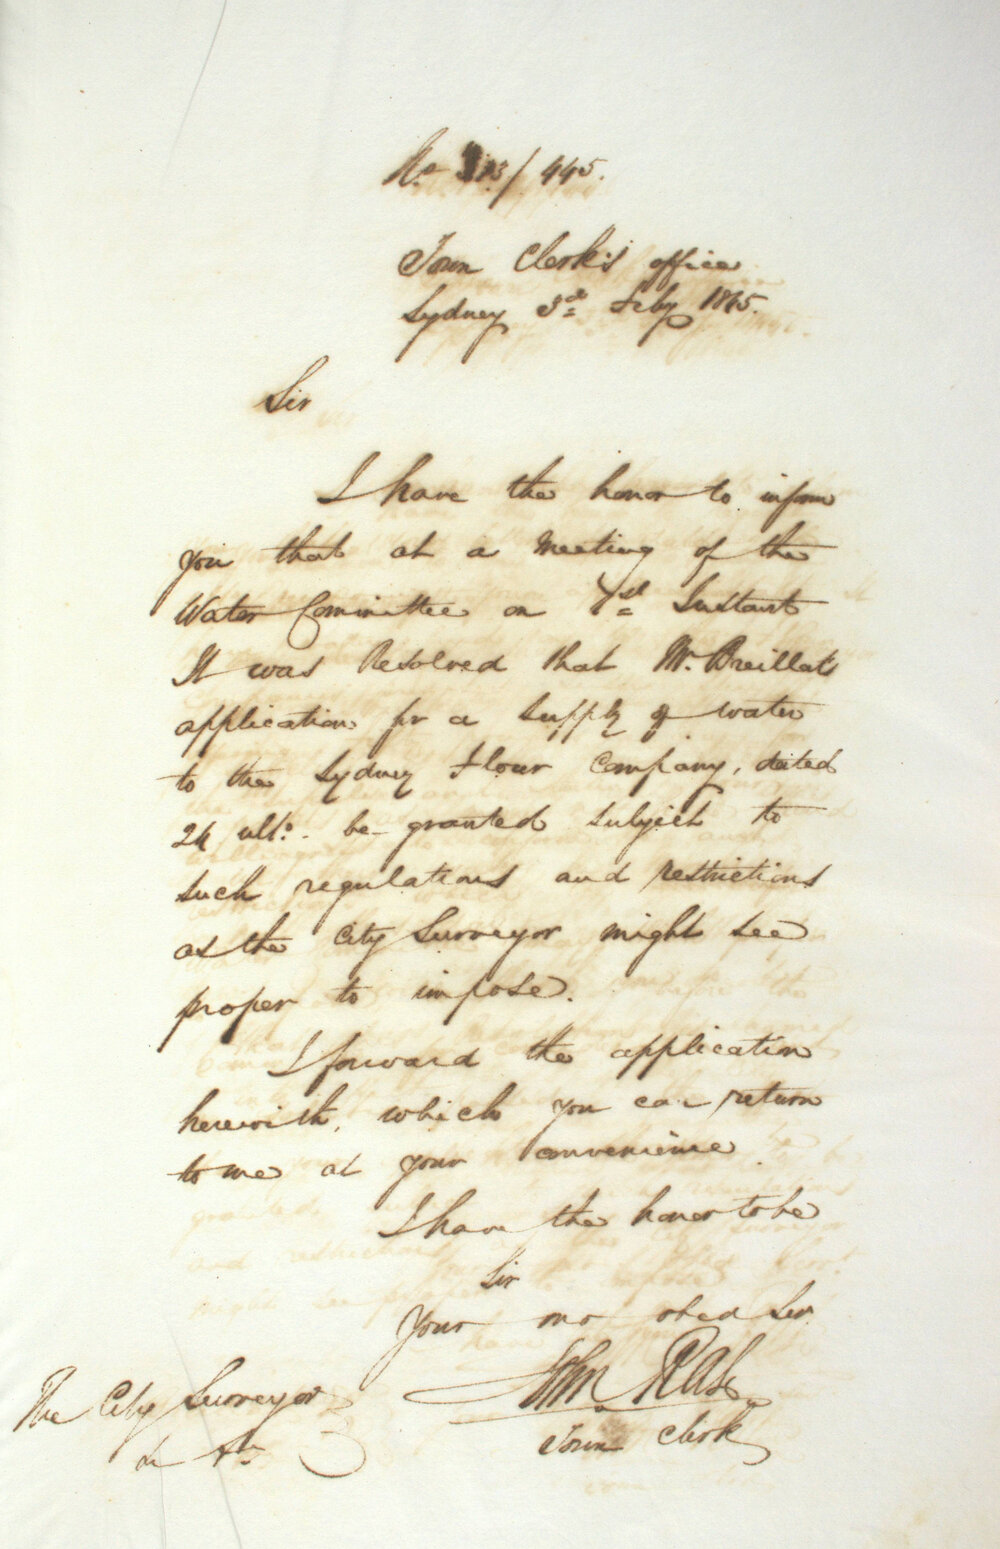 No 313/445.
Town Clerk's office
Sydney 3rd Feby 1845.
Sir
I have the honor to inform
you that at a Meeting of the
Water Committee on 1st Instant
It was Resolved that Mr. Breillats
application for a supply of water
to the Sydney Flour Company, dated
24 ulto. be granted subject to
such regulations and restrictions
as the City Surveyor might see
proper to impose.
I forward the application
herewith, which you can return
to me at your convenience
I have the honor to be
Sir
Your mo obed Ser
John Rae
Town Clerk
The City Surveyor